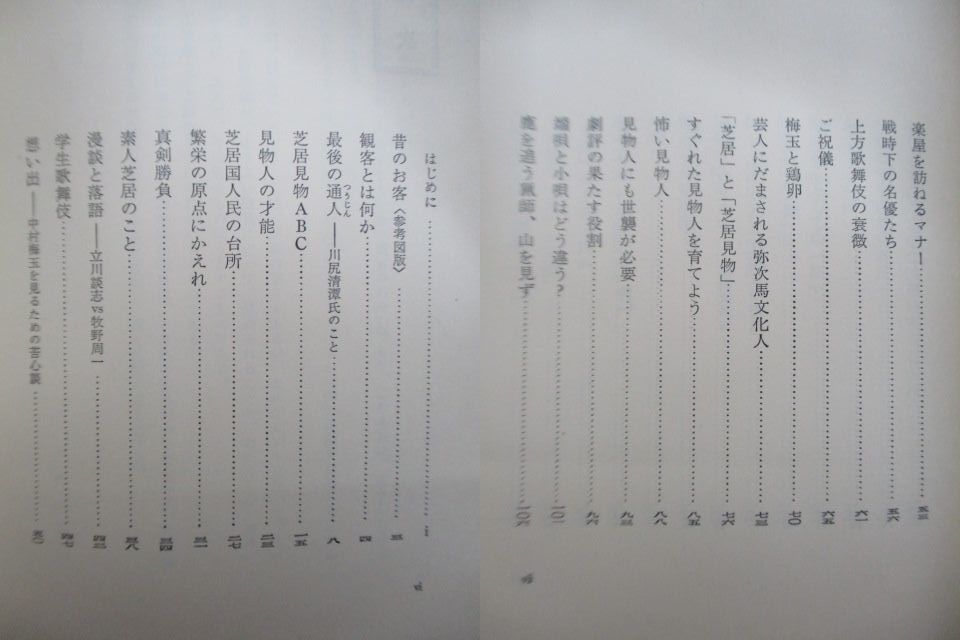 はじめに……一
昔のお客〈参考図版〉……三
観客とは何か……四
最後の通人(つうじん)――川尻清潭氏のこと……八
芝居見物ABC……一五
見物人の才能……二三
芝居国人民の台所……二七
繁栄の原点にかえれ……三一
真剣勝負……三四
素人芝居のこと……三八
漫談と落語――立川談志vs牧野周一……四三
学生歌舞伎……四七
想い出――中村梅玉を見るための苦心談……五〇
楽屋を訪ねるマナー……五三
戦時下の名優たち……五六
上方歌舞伎の衰微……六一
ご祝儀……六五
梅玉と鶏卵……七〇
芸人にだまされる弥次馬文化人……七三
「芝居」と「芝居見物」……七六
すぐれた見物人を育てよう……八五
怖い見物人……八八
見物人にも世襲が必要……九三
劇評の果たす役割……九六
端唄と小唄はどう違う？……一〇一
鹿を追う猟師、山を見ず……一〇六